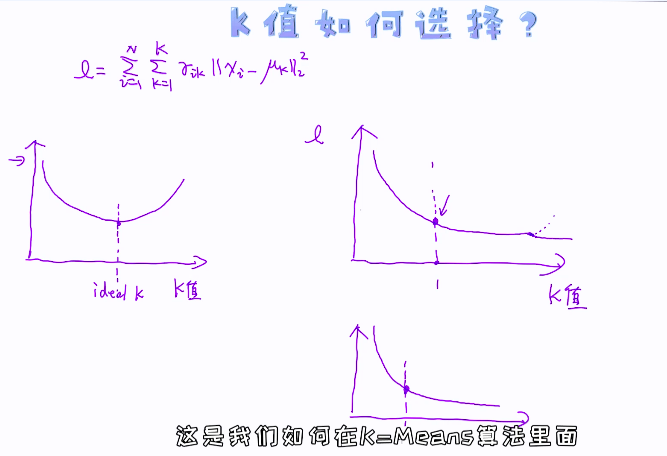 K值如何选择?
l = \sum_{i=1}^{N} \sum_{k=1}^{K} γ_{ik} ||x_i - μ_k||_2^2
l
ideal k
K值
K值
这是我们如何在K=Means算法里面